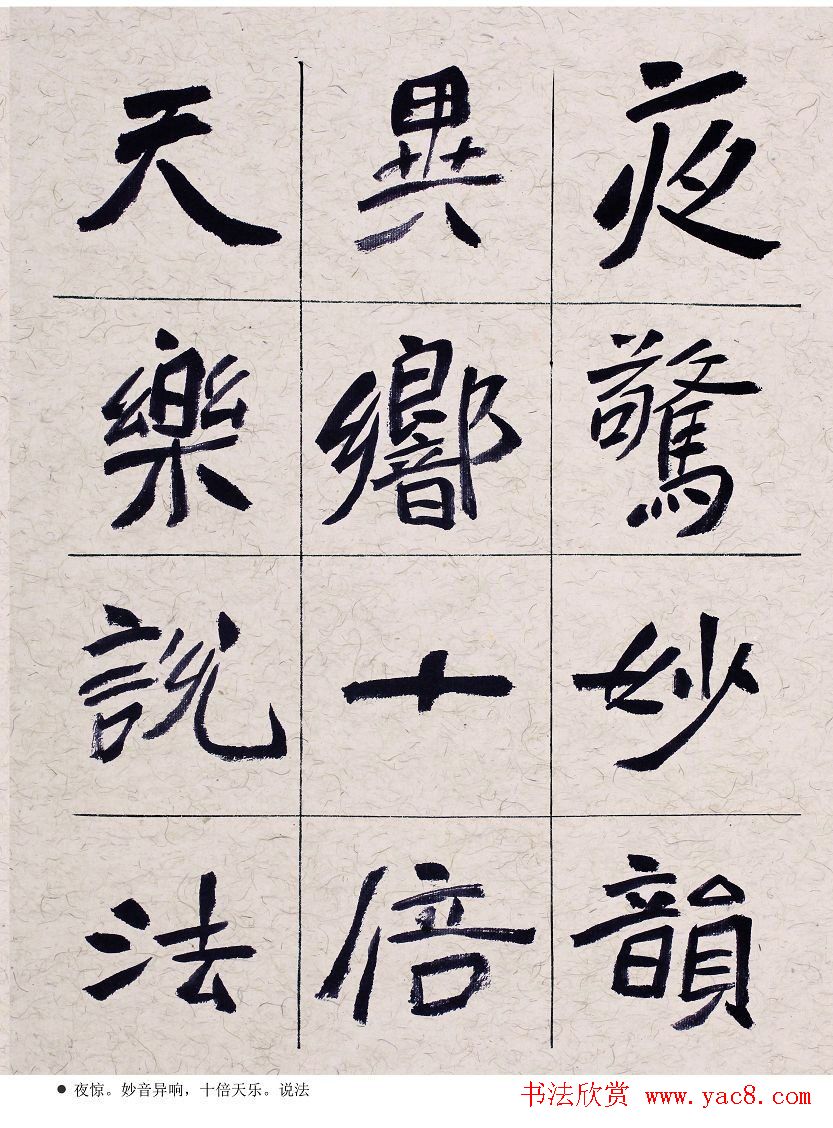 夜驚妙韻
異響十倍
天樂説法
● 夜惊。妙音异响，十倍天乐。说法
书法欣赏 www.yac8.com